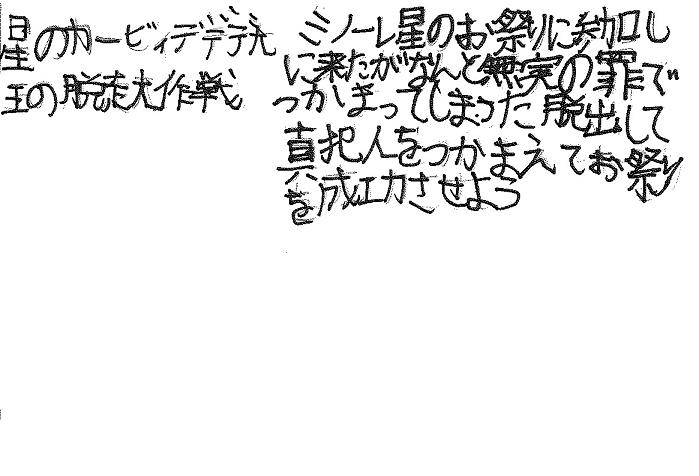 星のカービィデデデ大
王の脱走大作戦
ミノーレ星のお祭りに参加し
に来たがなんと無実の罪で
つかまってしまった脱出して
真犯人をつかまえてお祭り
を成功させよう